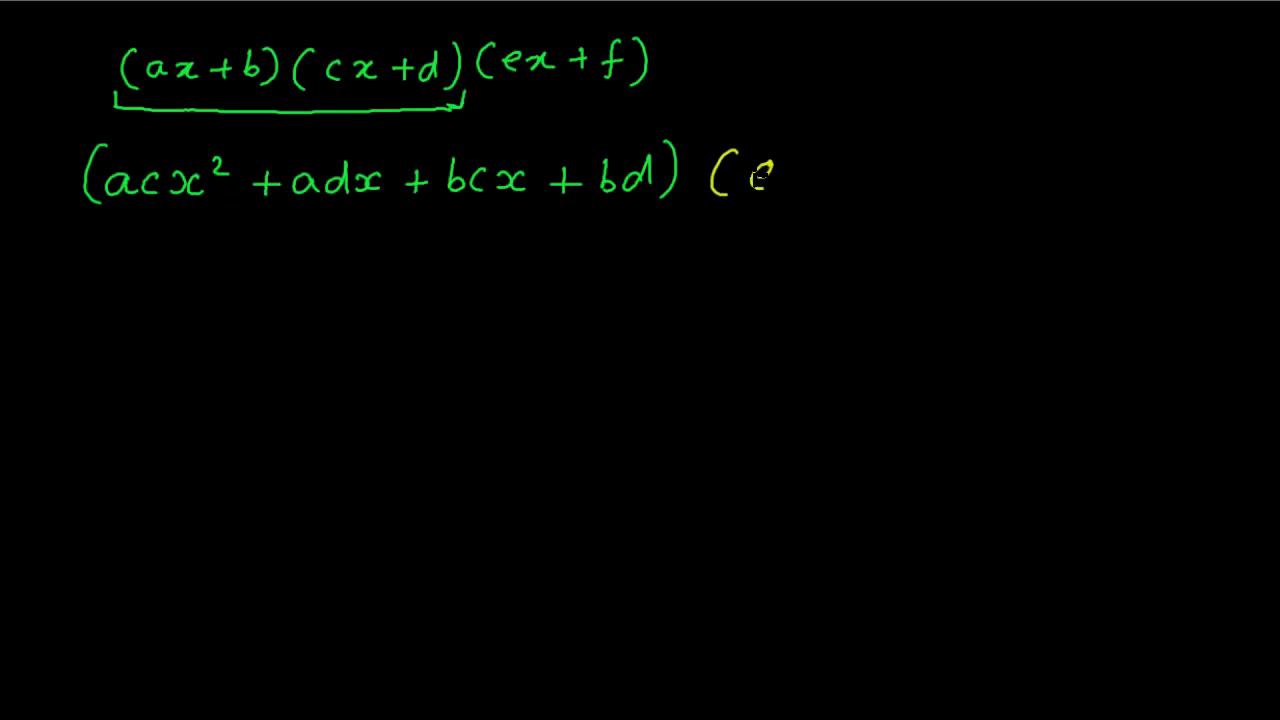 (ax+b)(cx+d)(ex+f)
(acx² +adx + bcx + bd) (e